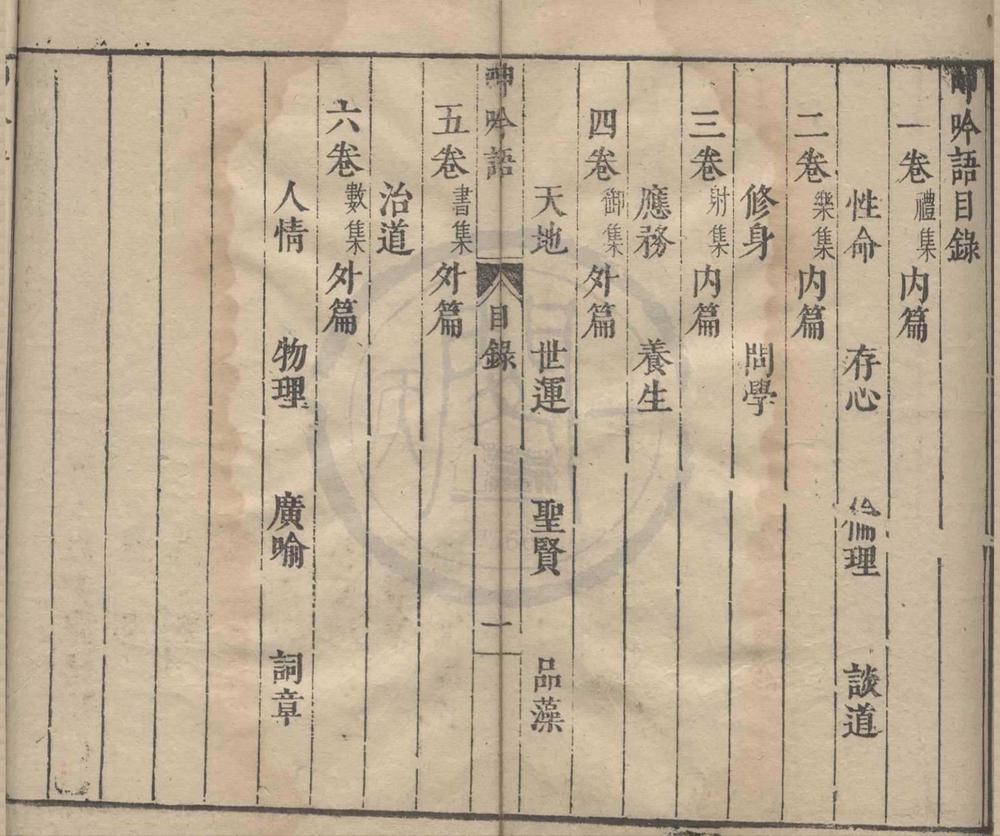 呻吟語目錄
一卷禮集内篇
性命 存心 倫理 談道
二卷樂集内篇
修身 問學
三卷射集内篇
應務 養生
四卷御集外篇
天地 世運 聖賢 品藻
呻吟語 目錄 一
五卷書集外篇
治道
六卷數集外篇
人情 物理 廣喻 詞章